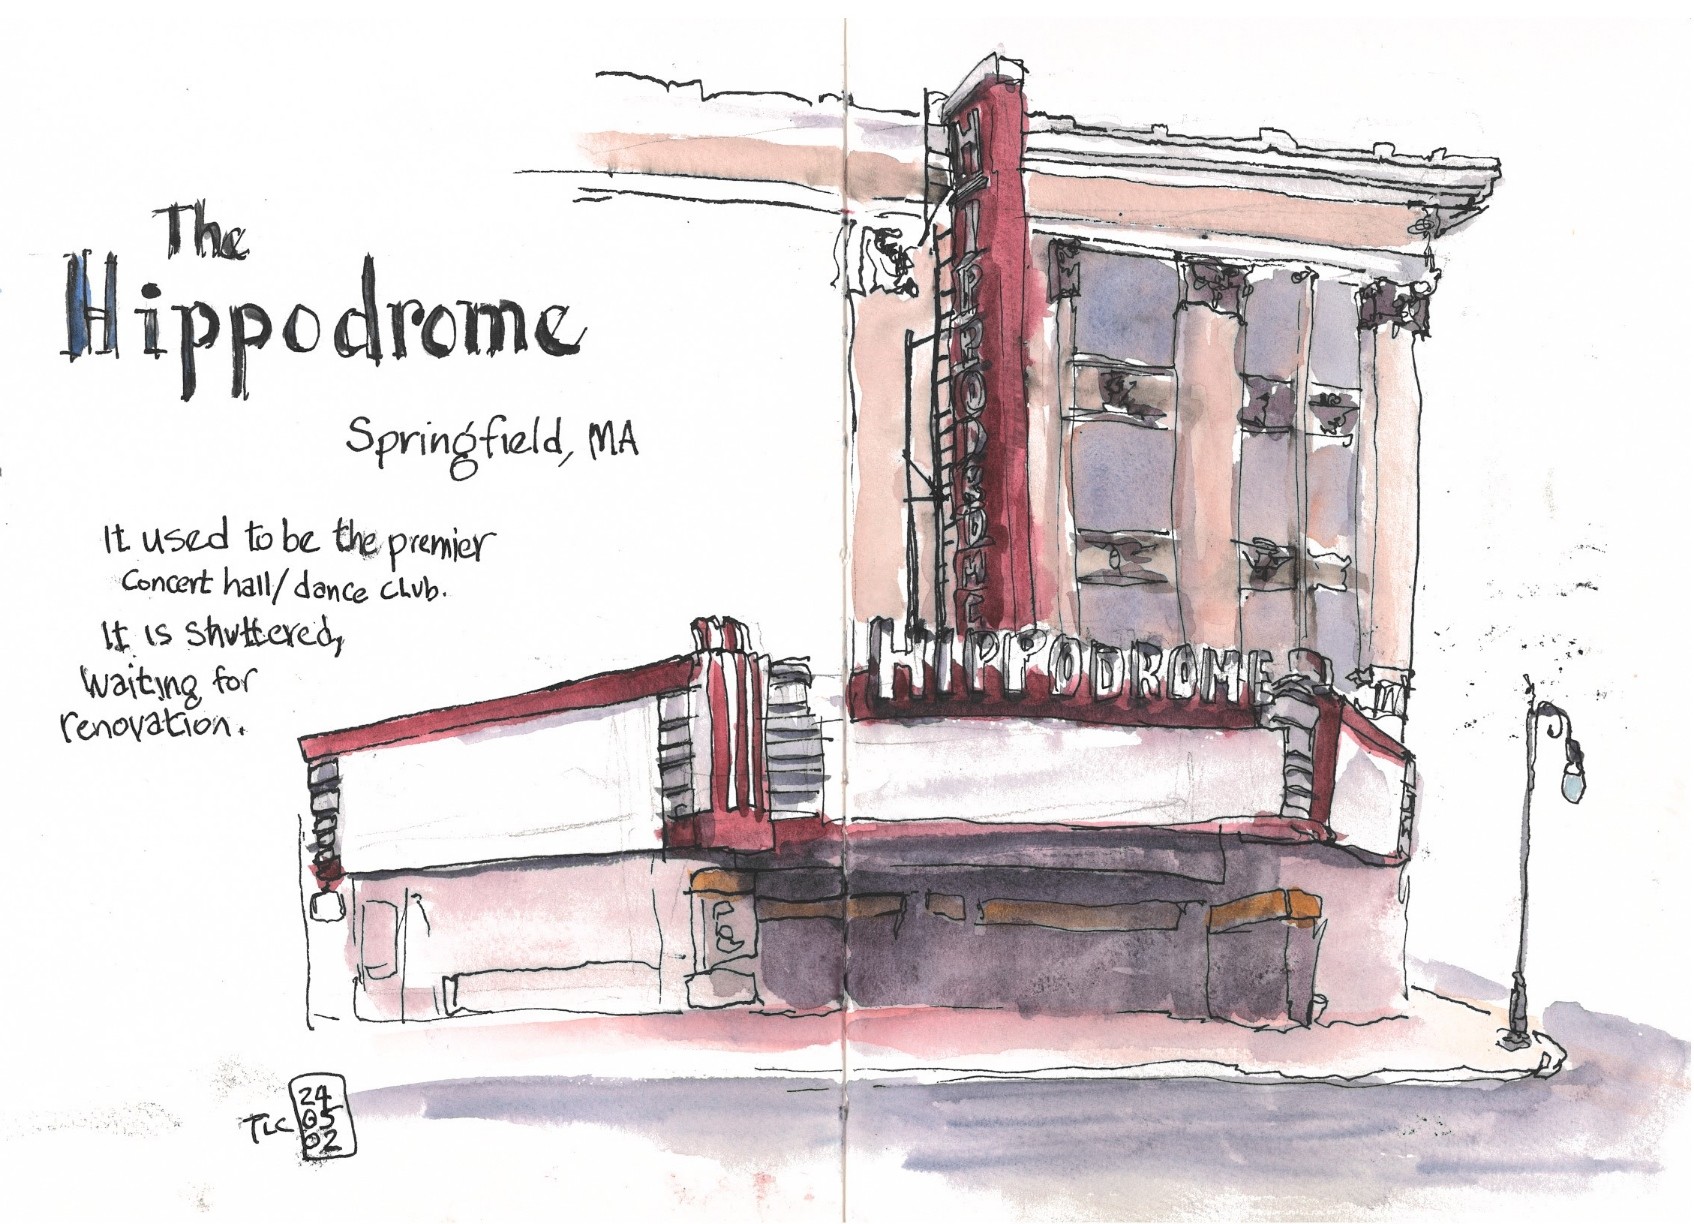 The
Hippodrome
Springfield, MA
It used to be the premier
Concert hall/dance club.
It is shuttered,
waiting for
renovation.
HIPPODROME
HIPPODROME
TLC
24
05
02